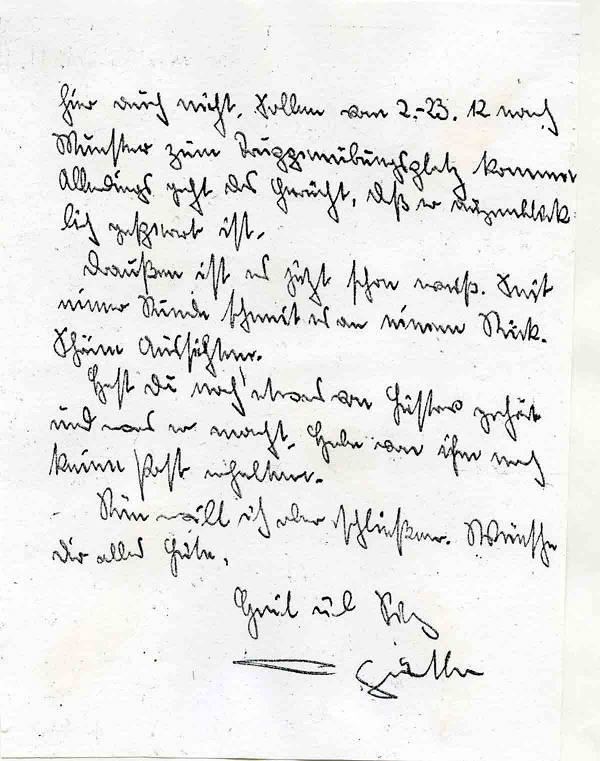 hier auch nicht. Sollen vom 2.-23. 12 nach
Munster zum Truppenübungsplatz kommen
Allerdings geht das Gerücht, daß er augenblick
lich gesperrt ist.
Draußen ist es jetzt schon weiß. Seit
einer Stunde schneit es an einem Stück.
Schöne Aussichten.
Hast du noch etwas von Gustav gehört
und was er macht. Habe von ihm noch
keine Post erhalten.
Nun will ich aber schließen. Wünsche
dir alles Gute.
Gruß und